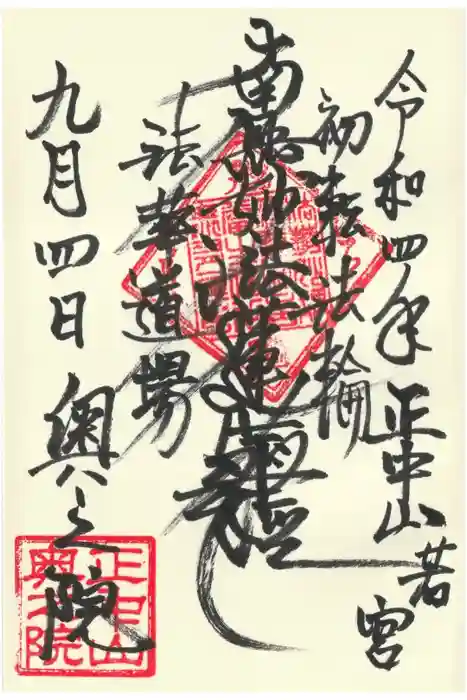 令和四年正中山若宮
初転法輪
南無妙法蓮華経
法華道場
九月四日奥之院
正中山
奥之院